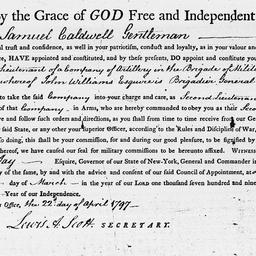 by the Grace of GOD Free and Independent
Samuel Caldwell Gentleman
trust and confidence, as well in your patriotism, conduct and loyalty, as in your valour and
HAVE appointed and constituted, and by these presents, DO appoint and constitute you
Lieutenant of a Company of Artillery in the Brigade of Militia
whereof John Williams Esquire is Brigadier General
to take the said Company into your charge and care, as Second Lieutenant
of that Company in Arms, who are hereby commanded to obey you as their Second
and follow such orders and directions, as you shall from time to time receive from our
said State, or any other your Superior Officer, according to the Rules and Discipline of War,
so doing, this shall be your commission, for and during our good pleasure, to be signified by
hereof, we have caused our seal for military commissions to be hereunto affixed. WITNESS
Jay Esquire, Governor of our State of New-York, General and Commander in
of the same, by and with the advice and consent of our said Council of Appointment, at
day of March in the Year of our Lord one thousand seven hundred and nine
year of our Independence.
Office, the 22 day of April 1797
Lewis A. Scott SECRETARY.